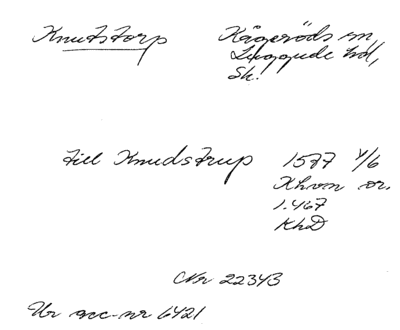 Knutstorp Kågeröds sn,
Luggude hd,
Sk.
till Knudstrup 1577 4/6
Khvn or.
1.467
KhD
CNr 22343
Ur acc-nr 6421